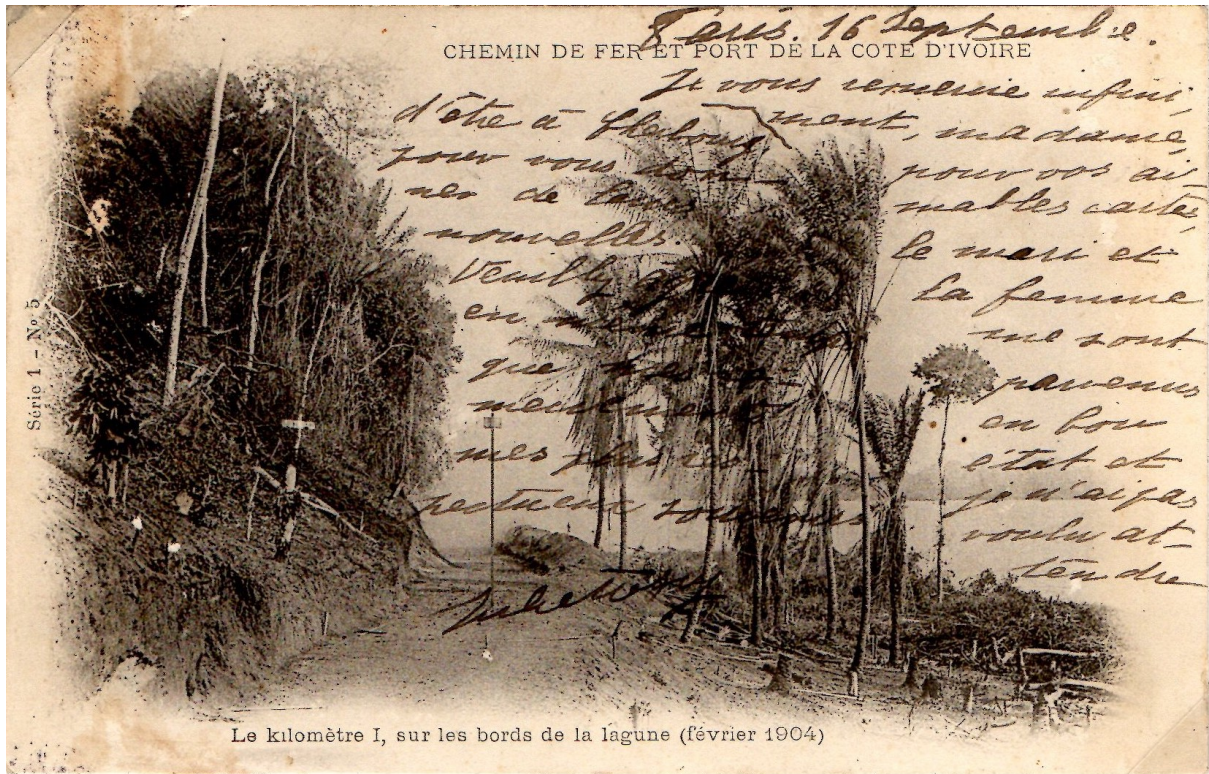 Paris. 16 Septembre.
CHEMIN DE FER ET PORT DE LA COTE D'IVOIRE
Je vous remercie infini
ment, madame,
pour vos ai-
mables cartes,
le mari et
la femme
me sont
parvenus
en bon
état et
je n'ai pas
voulu at-
tendre
d'être à
pour vous don
ner de
nouvelles.
Veuillez
en
que
mes plus res-
pectueux souvenirs
Juliette
Série 1 - No 5
Le kilomètre I, sur les bords de la lagune (février 1904)